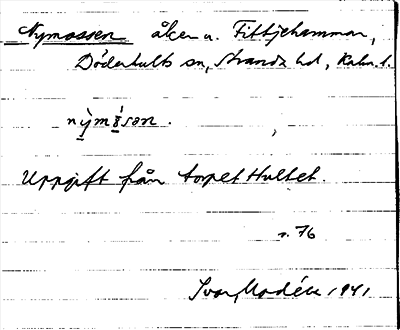 Nymossen åker u. Fittjehammar,
Döderhults sn, Stranda hd, Kalm. l.
nỳmósən.
Uppgift från torpet Hultet.
s. 76
Ivar Modéer 1941